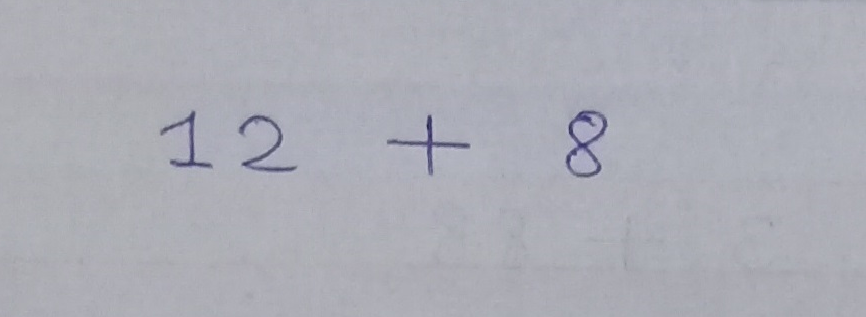 12 + 8